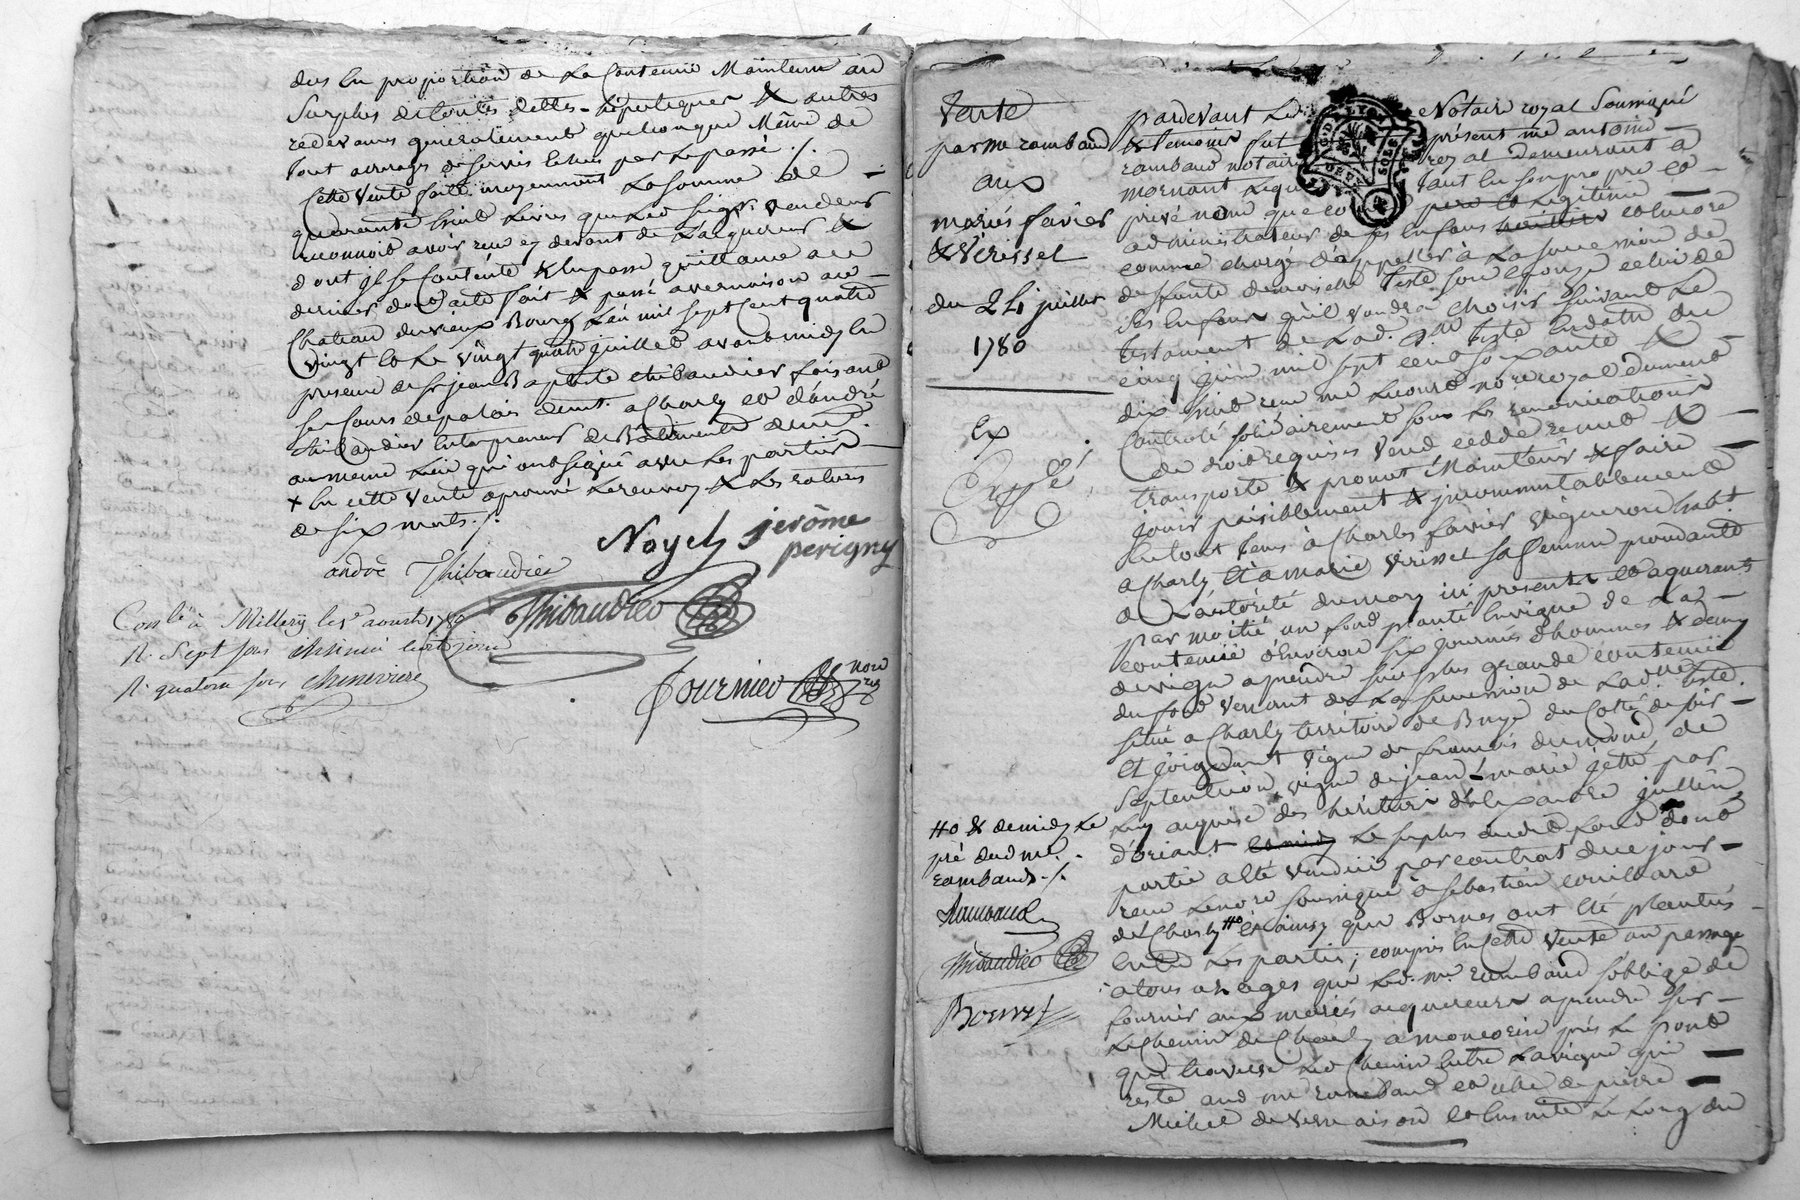 dus en proportion de la Contenue Maintenu au
Surplus de toutes dettes hipoteques & autres
redevances generalement quelconque Même de
tout arrerage de servis echus par le passé ./.
Cette Vente faite moyennant La somme de
quarante huit Livres que led. sieur vendeur
reconnoit avoir reçu cy devant de L'acquereur &
dont il se Contente & en passe quittance
dernier dont acte fait & passé a vernaison au
Chateau du vieux Bourg L'an mil sept cent quatre
vingt et le vingt quatre juillet avant midy en
presence de sr jean Baptiste thibaudier faisant
ses Cours de palais demt. a Charly et d'andré
thibaudier Entrepreneur de Bâtiments demt.
au meme Lieu qui ont signé avec les parties
+ En cette vente aprouvé le renvoy & les ratures
de six mots ./.
Noyel jerôme
perigny
andré Thibaudier
Thibaudier
Conlé à Millery le 1er aoust 1780
R. Sept sous
R. quatorze sous Chenevière
Fournier nore
Vente
par me rambaud
aux
mariés favier
& Verisset
du 24 juillet
1780
Ex
pardevant Le Notaire royal Soussigné
& temoins fut présent me antoine
rambaud notaire royal demeurant à
mornant Lequel tant en son propre et
privé nom que comme pere et Légitime
administrateur de ses Enfans et encore
comme chargé d'appeller à La succession de
deffunte demoiselle teste son épouse celui de
ses Enfans qu'il voudra choisir suivant Le
testament de Lad. dlle teste En datte du
cinq juin mil sept cent soixante &
dix huit reçu me Lecourt nore royal dument
Controlé solidairement sous Les renonciations
de droit requises Vend cedde remet &
transporte & promet Maintenir & faire
jouir paisiblement & incommutablement
En tout tems à Charles favier vigneron habt.
a Charly et à marie verisset sa femme procédante
de L'autorité du mary ici presents et aquerants
par moitié un fond planté En vigne de La
contenue d'Environ six journées d'hommes & demy
de vigne a prendre sur plus grande contenue
du fond venant de La succession de Ladlle teste
situé a Charly territoire de du Cotté de soir
Et joignant vigne de françois dumond, de
Septentrion vigne de jean-marie jette par
Luy acquise des héritiers d'alexandre jullien
d'oriant Le surplus dudit fond dont
partie a été vendüe par contrat de ce jour
reçu Le nore soussigné à Sebastien
de Charly Ho & ainsy que Bornes ont été plantées
Entre Les parties; compris En cette vente un passage
a tous usages que Led. me rambaud s'oblige de
fournir aux mariés acquereurs a prendre sur
Le Chemin de Charly a près Le pont
qui traverse Led Chemin Entre La vigne qui
reste aud me rambaud et celle de pierre
Michel de vernaison et Ensuite Le Long du
Ho & de midy Le
pré dud me.
rambaud ./.
Rambaud
Thibaudier